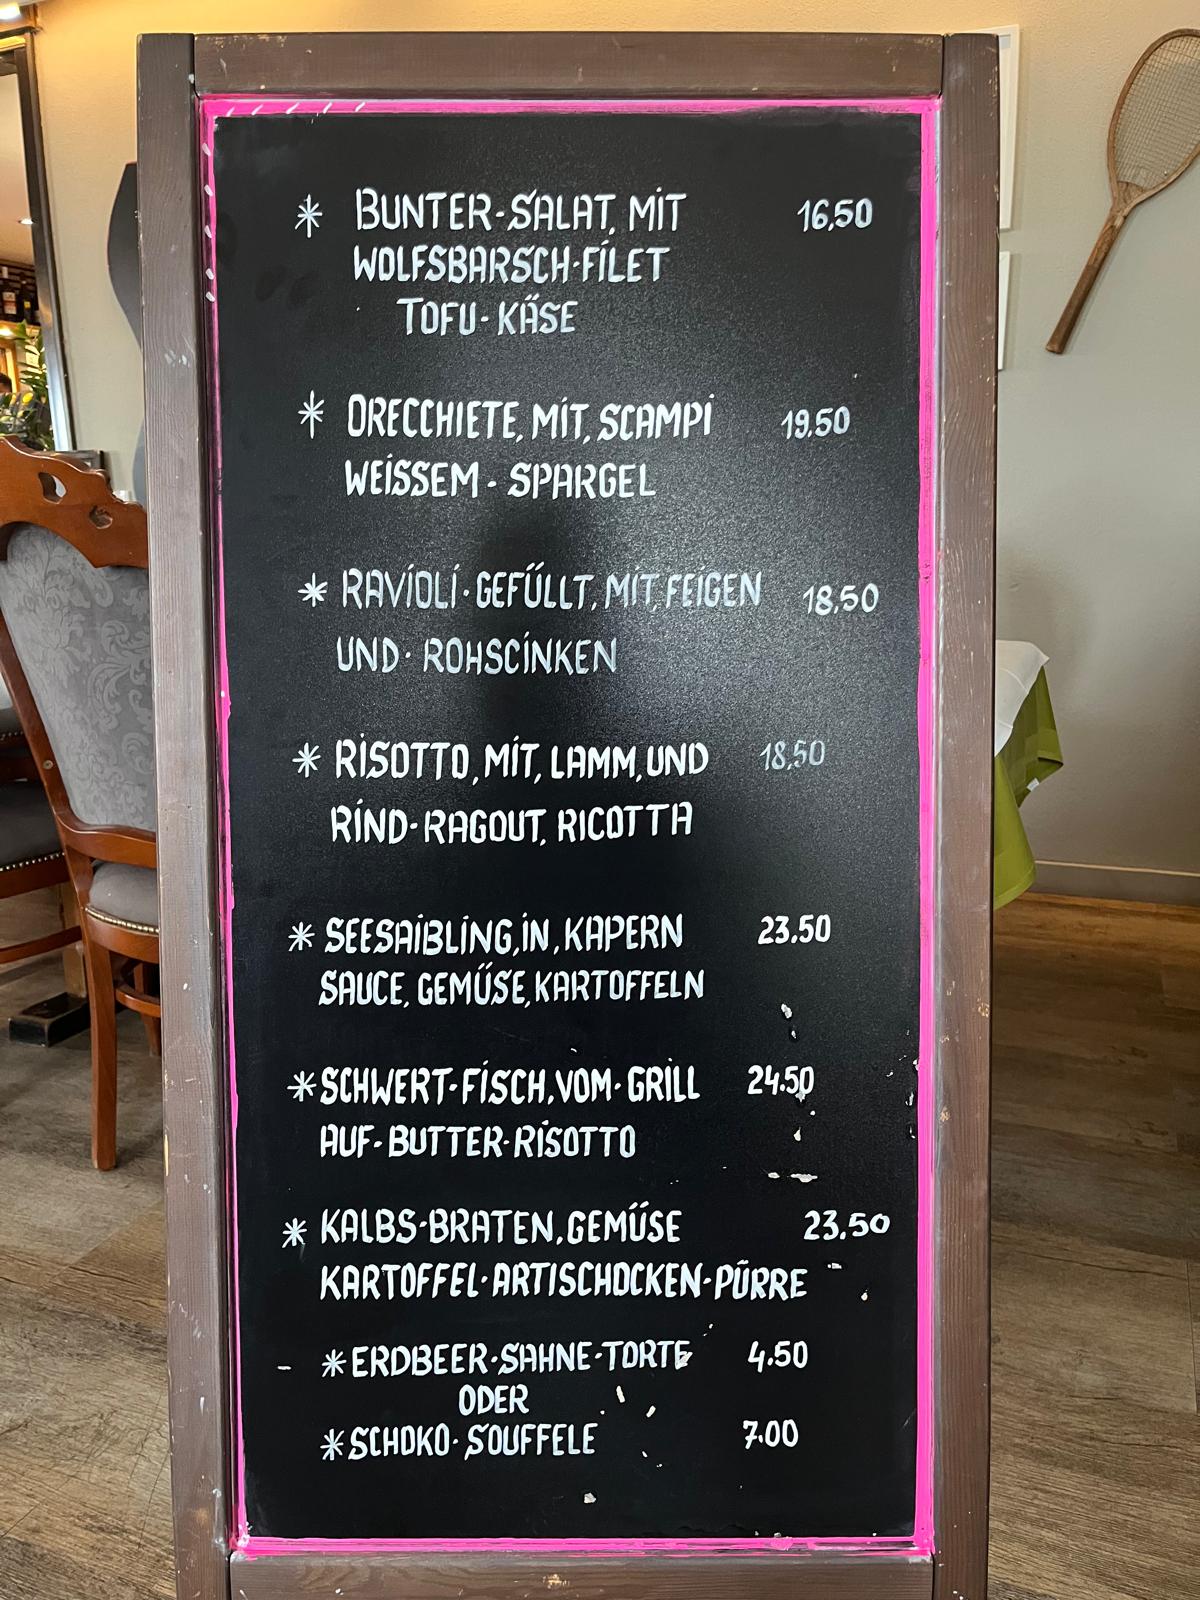 * BUNTER-SALAT, MIT 16,50
WOLFSBARSCH-FILET
TOFU-KÄSE
* ORECCHIETE, MIT, SCAMPI 19.50
WEISSEM - SPARGEL
* RAVIOLI-GEFÜLLT, MIT, FEIGEN 18,50
UND-ROHSCINKEN
* RISOTTO, MIT, LAMM, UND 18,50
RIND-RAGOUT, RICOTTA
* SEESAIBLING, IN, KAPERN 23.50
SAUCE, GEMÜSE, KARTOFFELN
* SCHWERT-FISCH, VOM-GRILL 24.50
AUF-BUTTER-RISOTTO
* KALBS-BRATEN, GEMÜSE 23.50
KARTOFFEL-ARTISCHOCKEN-PÜRRE
* ERDBEER-SAHNE-TORTE 4.50
ODER
* SCHOKO-SOUFFELE 7.00